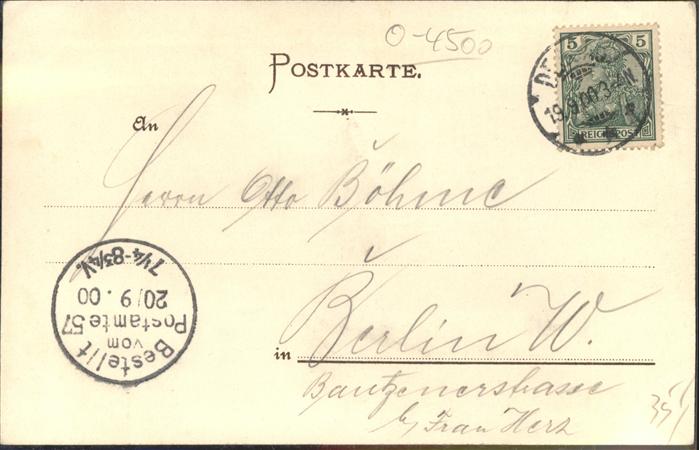 O-4500
POSTKARTE.
5 5
REICHSPOST
19.9.00.3-4N.
An
Herrn Otto Böhme
Bestellt
vom
Postamte 57
20/9.00
7 1/4-8 3/4 V.
in Berlin W.
Bautzenerstrasse
b/ Frau Herz